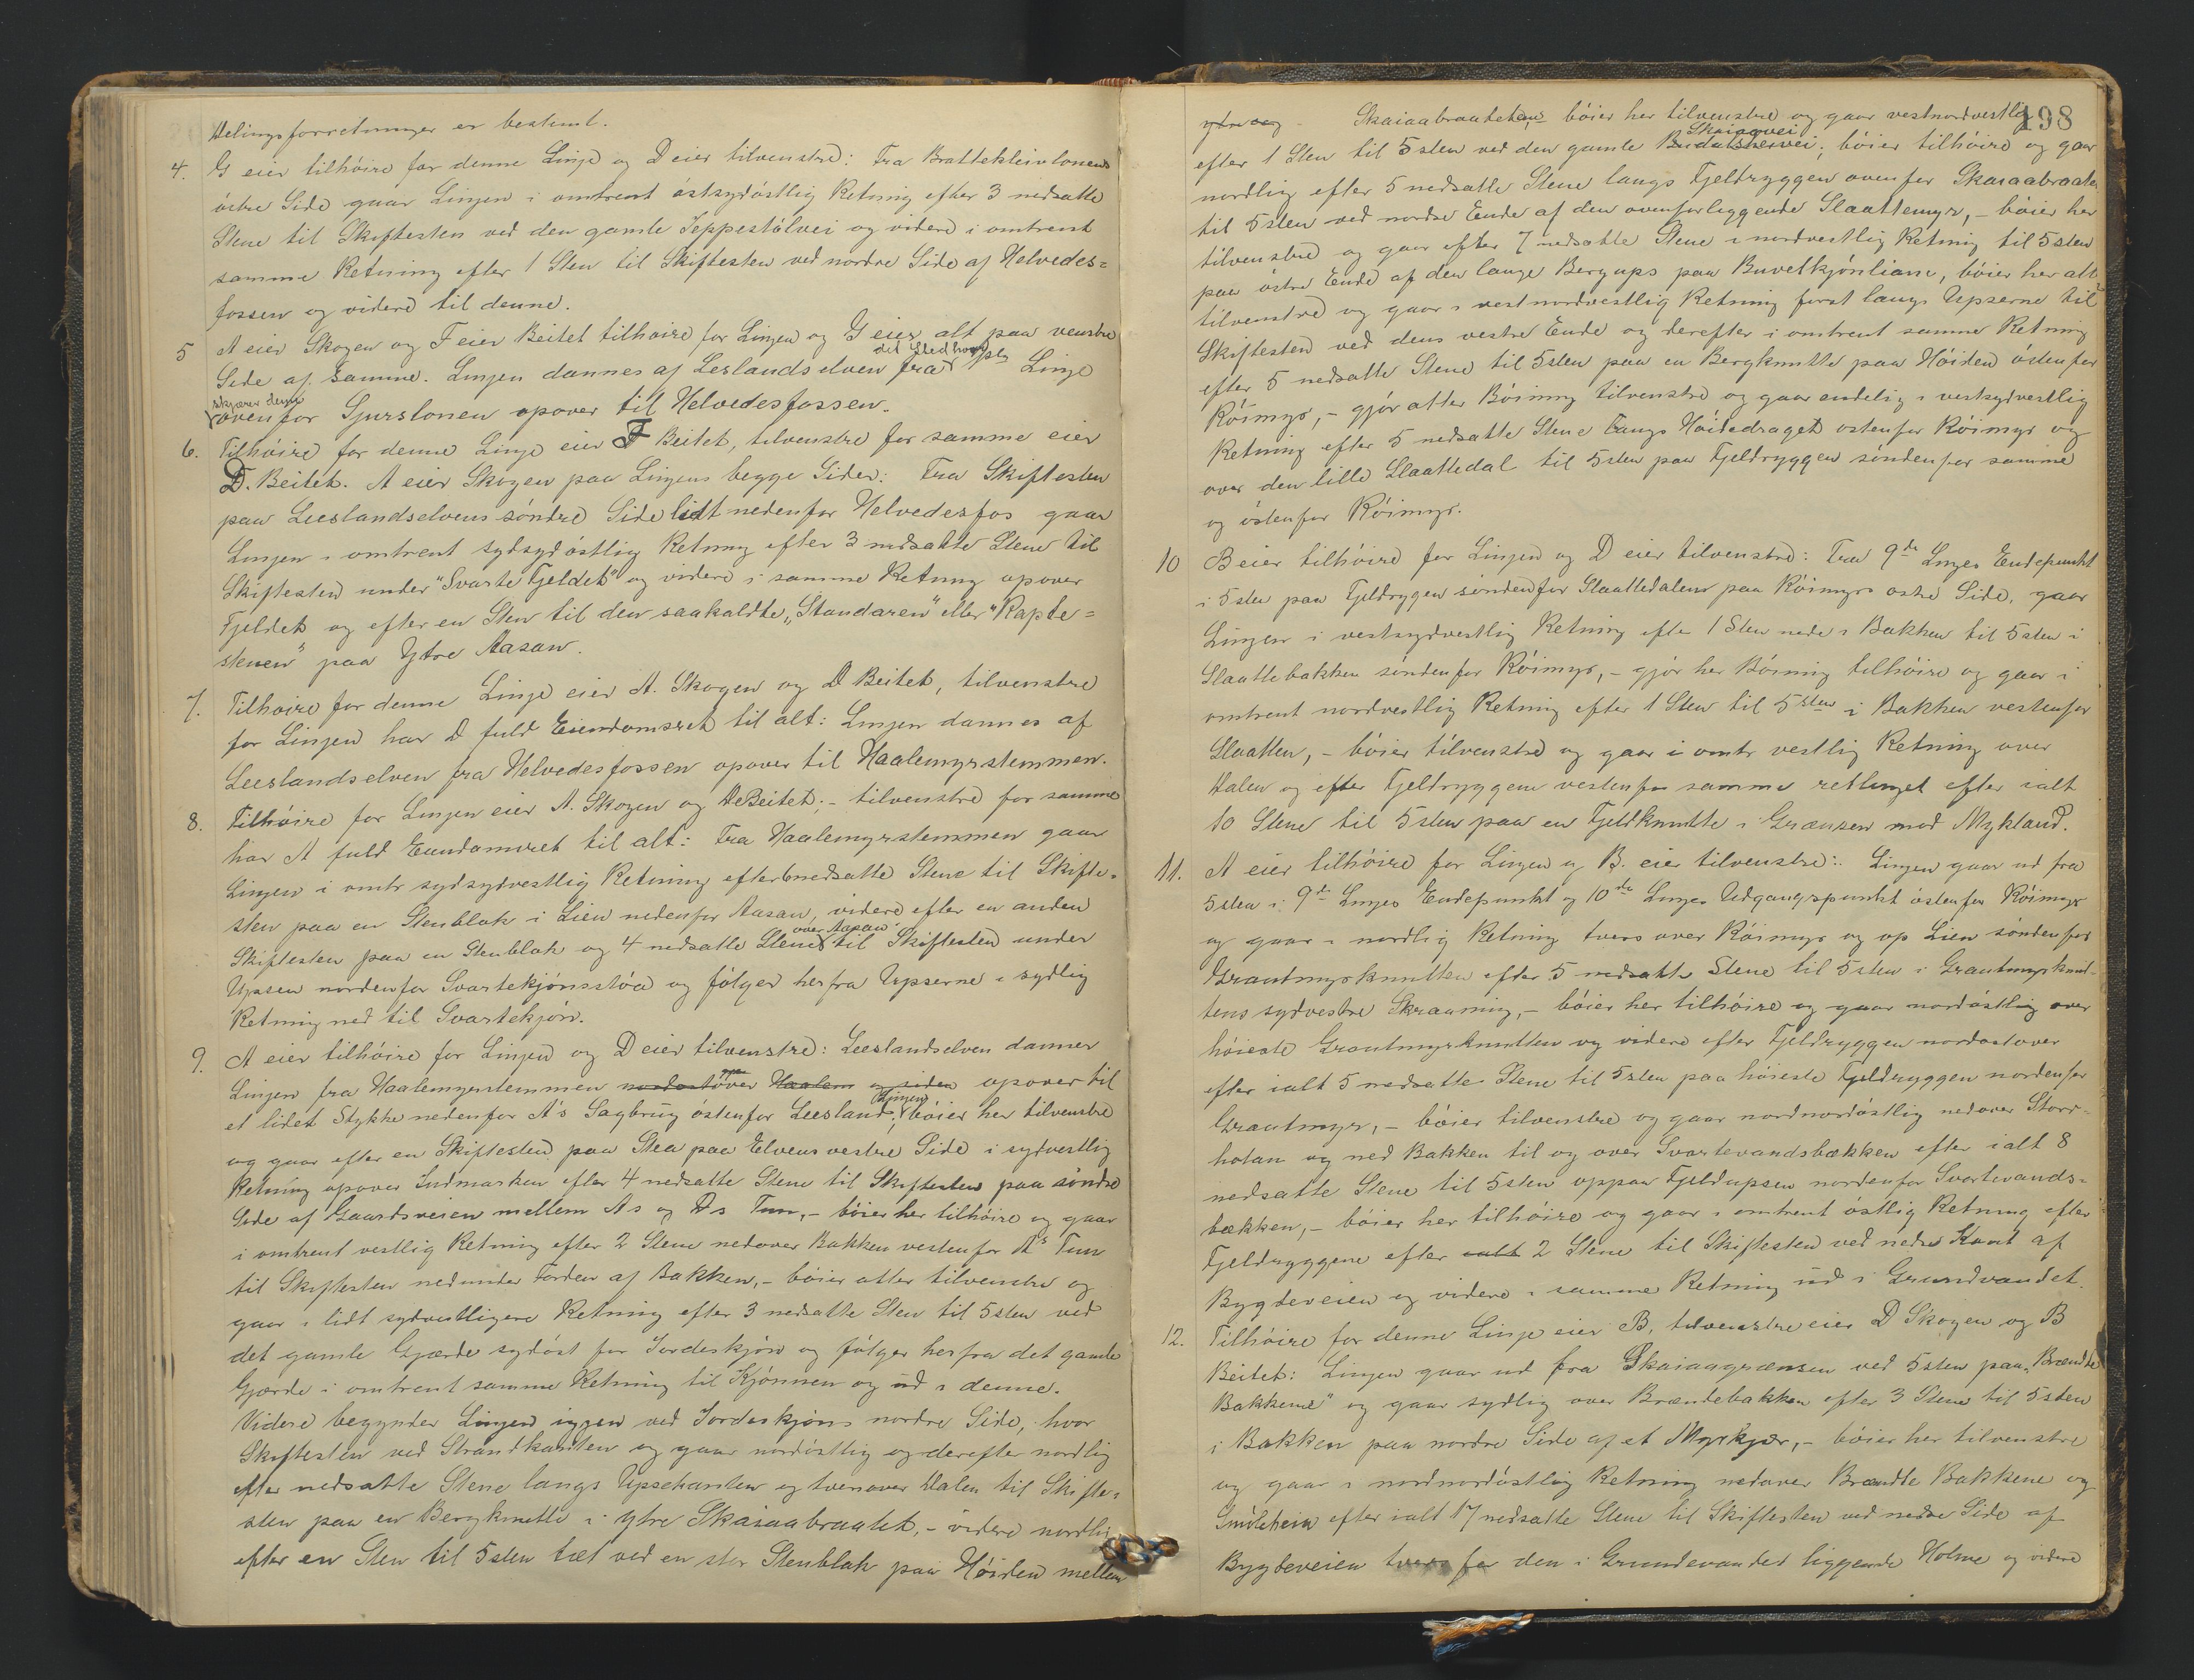 Delingsforretninger er bestemt.
4. G eier tilhöire for denne Linje og D eier tilvenstre: Fra Brattekleivlonens
östre Side gaar Linjen i omtrent östsydöstlig Retning efter 3 nedsatte
Stene til Skiftesten ved den gamle Jeppestölvei og videre i omtrent
samme Retning efter 1 Sten til Skiftesten ved nordre Side af Helvedes=
fossen og videre til denne.
5 A eier Skogen og F eier Beitet tilhöire for Linjen og G eier alt paa venstre
Side af samme. Linjen dannes af Leslandselven fra det Sted hvor Linje
skjærer denne
ovenfor Sjurslonen opover til Helvedesfossen.
6. Tilhöire for denne Linje eier F Beitet, tilvenstre for samme eier
D. Beitet. A eier Skogen paa Linjens begge Sider: Fra Skiftesten
paa Leeslandselvens söndre Side lidt nedenfor Helvedesfos gaar
Linjen i omtrent sydsydöstlig Retning efter 3 nedsatte Stene til
Skiftesten under "Svarte Fjeldet" og videre i samme Retning opover
Fjeldet og efter en Sten til den saakaldte „Standaren" eller "Rapte=
stenen" paa Ytre Aasan.
7. Tilhöire for denne Linje eier A. Skogen og D Beitet, tilvenstre
for Linjen har D fuld Eiendomsret til alt: Linjen dannes af
Leeslandselven fra Helvedesfossen opover til Haalemyrstemmen.
8. Tilhöire for Linjen eier A. Skogen og D Beitet; - tilvenstre for samme
har A fuld Eiendomsret til alt: Fra Haalemyrstemmen gaar
Linjen i omtr sydsydvestlig Retning efter 6 nedsatte Stene til Skifte=
sten paa en Stenblok i Lien nedenfor Aasan, videre efter en anden
Skiftesten paa en Stenblok og 4 nedsatte Stene over Aasan til Skiftesten under
Upsen nordenfor Svartekjönsstöa og fölger herfra Upserne i sydlig
Retning ned til Svartekjön.
9. A eier tilhöire for Linjen og D eier tilvenstre: Leeslandselven danner
Linjen fra Haalemyrstemmen nordostover Haalem og siden opover til
et lidet Stykke nedenfor A's Sagbrug östenfor Leesland; Linjen böier her tilvenstre
og gaar efter en Skiftesten paa Stea paa Elvens vestre Side i sydvestlig
Retning opover Indmarken efter 4 nedsatte Stene til Skiftesten paa söndre
Side af Gaardsveien mellem A's og D's Tun, - böier her tilhöire og gaar
i omtrent vestlig Retning efter 2 Stene nedover Bakken vestenfor A's Tun
til Skiftesten nedunder Foden af Bakken, - böier atter tilvenstre og
gaar i lidt sydvestligere Retning efter 3 nedsatte Sten til 5sten ved
det gamle Gjærde sydöst for Jordeskjön og fölger herfra det gamle
Gjærde i omtrent samme Retning til Kjönnen og ud i denne.
Videre begynder Linjen igjen ved Jordeskjöns nordre Side, hvor
Skiftesten ved Strandkanten og gaar nordöstlig og derefter nordlig
efter nedsatte Stene langs Upsekanten og tversover Dalen til Skifte=
sten paa en Bergknutte i Ytre Skaiaabraatet, - videre nordlig
efter en Sten til 5sten tæt ved en stor Stenblok paa Höiden mellem
198
ytre og Skaiaabraatetene böier her tilvenstre og gaar vestnordvestlig
efter 1 Sten til 5sten ved den gamle Skaiaavei; böier tilhöire og gaar
nordlig efter 5 nedsatte Stene langs Fjeldryggen ovenfor Skaiaabraaten
til 5sten ved nordre Ende af den ovenforliggende Slaattemyr, - böier her
tilvenstre og gaar efter 7 nedsatte Stene i nordvestlig Retning til 5sten
paa östre Ende af den lange Bergups paa Buvetkjönliane, böier her alt
tilvenstre og gaar i vestnordvestlig Retning först langs Upserne til
Skiftesten ved dens vestre Ende og derefter i omtrent samme Retning
efter 5 nedsatte Stene til 5sten paa en Bergknutte paa Höiden östenfor
Röimyr, - gjör atter Böining tilvenstre og gaar endelig i vestsydvestlig
Retning efter 5 nedsatte Stene langs Höidedraget ostenfor Röimyr og
over den lille Slaattedal til 5sten paa Fjeldryggen söndenfor samme
og östenfor Röimyr.
10 B eier tilhöire for Linjen og D eier tilvenstre: Fra 9de Linjes Endepunkt
i 5sten paa Fjeldryggen söndenfor Slaattedalene paa Röimyrs ostre Side, gaar
Linjen i vestsydvestlig Retning efter 1 Sten nede i Bakken til 5sten i
Slaattebakken söndenfor Röimyr, - gjör her Böining tilhöire og gaar i
omtrent nordvestlig Retning efter 1 Sten til 5sten i Bakken vestenfor
Slaatten, - böier tilvenstre og gaar i omtr vestlig Retning over
Dalen og efter Fjeldryggene vestenfor samme retlinjet efter ialt
10 Stene til 5sten paa en Fjeldknutte i Grænsen mod Mykland.
11. A eier tilhöire for Linjen og B. eier tilvenstre: Linjen gaar ud fra
5sten i 9de Linjes Endepunkt og 10de Linjes Udgangspunkt östenfor Röimyr
og gaar i nordlig Retning tvers over Röimyr og op Lien söndenfor
Grautmyrknutten efter 5 nedsatte Stene til 5sten i Grautmyrknut-
tens sydvestre Skraaning, - böier her tilhöire og gaar nordöstlig over
höieste Grautmyrknutten og videre efter Fjeldryggen nordostover
efter ialt 5 nedsatte Stene til 5sten paa höieste Fjeldryggen nordenfor
Grautmyr, - böier tilvenstre og gaar nordnordöstlig nedover Stor=
holan og ned Bakken til og over Svartevandsbækken efter ialt 8
nedsatte Stene til 5sten oppaa Fjeldupsen nordenfor Svartevands=
bækken, - böier her tilhöire og gaar i omtrent östlig Retning efter
Fjeldryggene efter ialt 2 Stene til Skiftesten ved nedre Kant af
Bygdeveien og videre i samme Retning ud i Grundvandet.
12. Tilhöire for denne Linje eier B, tilvenstre eier D Skogen og B
Beitet: Linjen gaar ud fra Skaiaagrænsen ved 5sten paa „Brændte
Bakkene" og gaar sydlig over Brændebakken efter 3 Stene til 5sten
i Bakken paa nordre Side af et Myrkjær, - böier her tilvenstre
og gaar i nordnordöstlig Retning nedover Brændte Bakkene og
efter ialt 17 nedsatte Stene til Skiftesten ved nedre Side af
Bygdeveien tvers for den i Grundevandet liggende Holme og videre